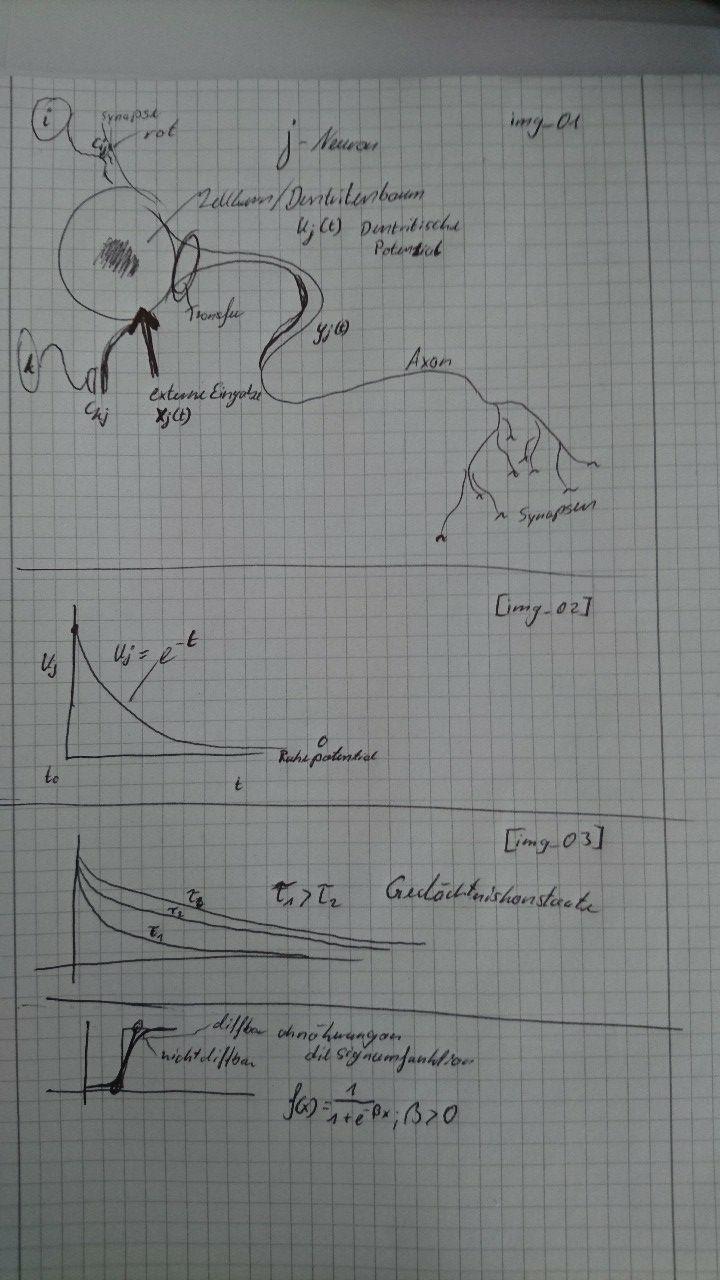 i
Synapse
rot
Cij
j-Neuron
img_01
Zellkern/Dentritenbaum
Uj(t) Dentritische
Potential
Transfer
yj(t)
k
Ckj
externe Eingabe
Xj(t)
Axon
Synapsen
[img_02]
Uj
Uj = e^-t
0
Ruhepotential
t0
t
[img_03]
τ3
τ2
τ1
τ1 > τ2 Gedächtniskonstante
diffbar
nicht diffbar
annäherungan
die signumfunktion
f(x) = 1/(1+e^-βx); β>0